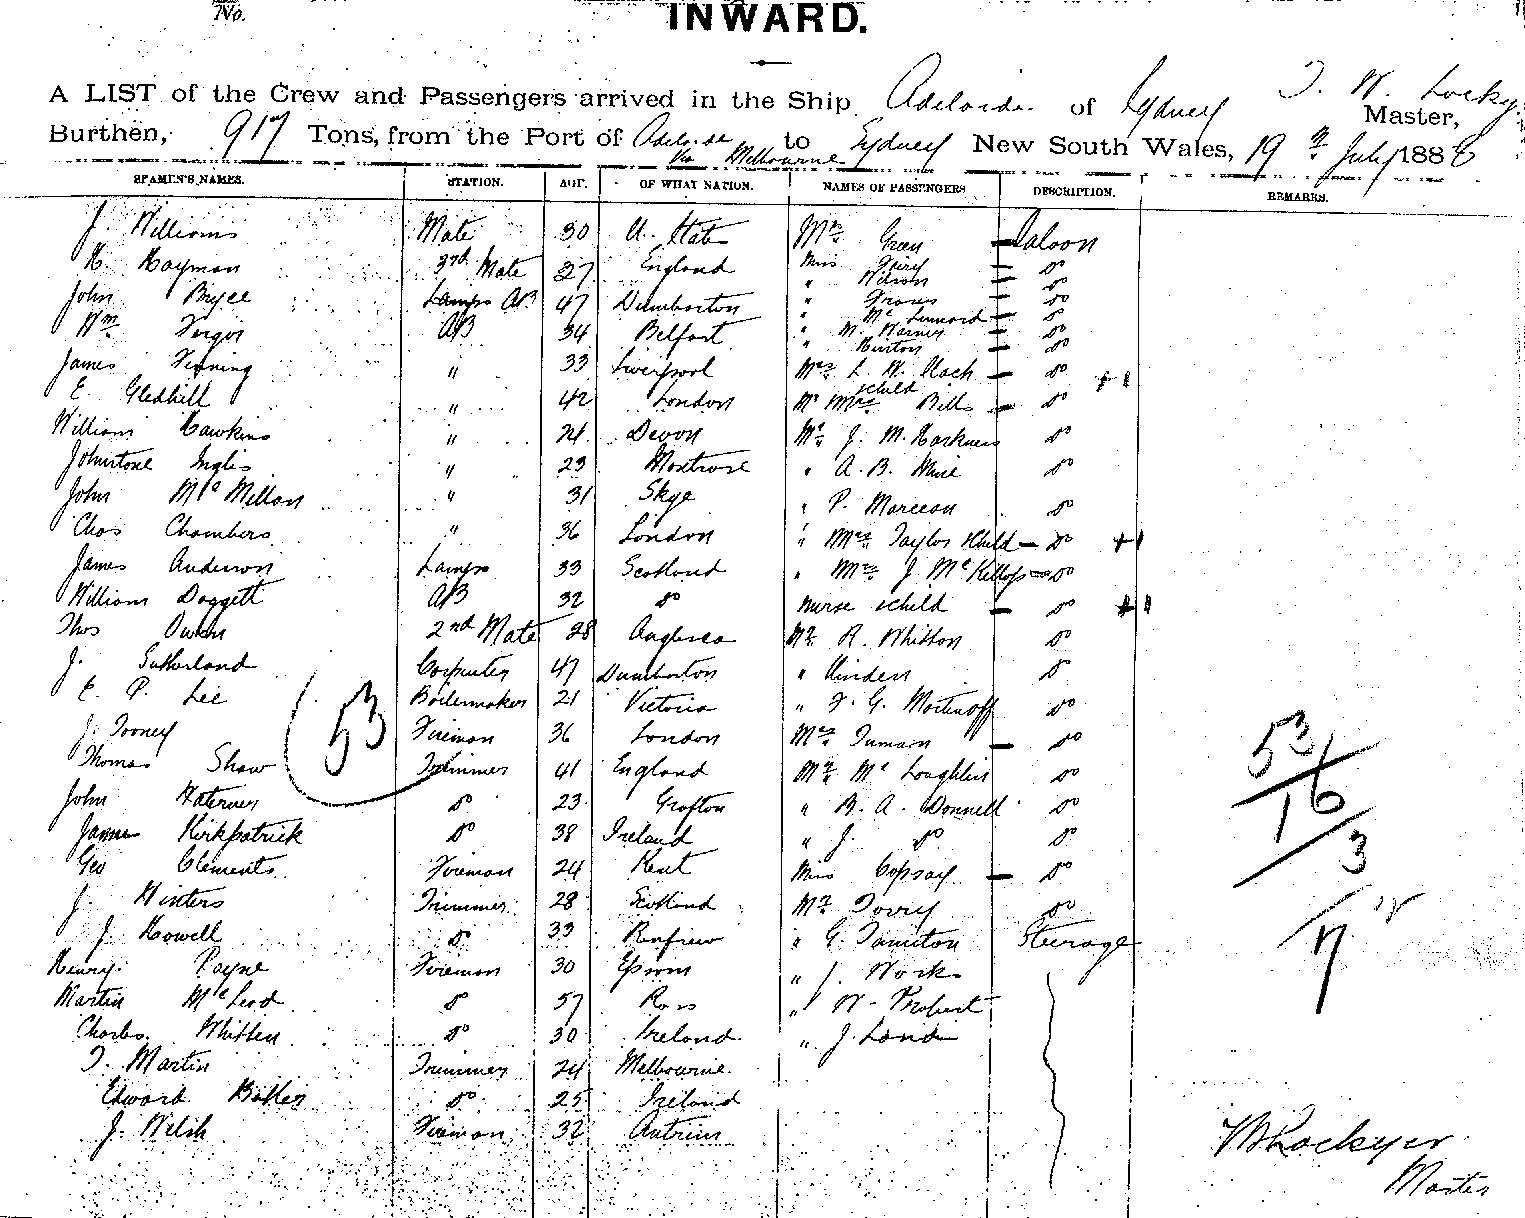 No.
INWARD.
A LIST of the Crew and Passengers arrived in the Ship Adelaide of Sydney T. W. Lockyer Master,
Burthen, 917 Tons, from the Port of Adelaide via Melbourne to Sydney New South Wales, 19th July 1888
SEAMEN'S NAMES. STATION. AGE. OF WHAT NATION. NAMES OF PASSENGERS DESCRIPTION. REMARKS.
J. Williams Mate 30 U. States Mrs Green Saloon
H. Hayman 3rd Mate 27 England Miss Fairy do
" Wilson do
John Bryce Lamps AB 47 Dumbarton " Graves do
" McLennard do
Wm Fergis AB 34 Belfast " M. Warner do
" Hurton do
James Fenning " 33 Liverpool Mrs L. W. Mack child do + 1
E. Gledhill " 42 London Mr Mrs Bills do
William Hawkins " 24 Devon Mr J. M. Harkness do
Johnstone Inglis " 23 Montrose " A. B. Muir do
John McMillan " 31 Skye " P. Marcean do
Chas Chambers " 36 London " Mrs Taylor & child do + 1
James Anderson Lamps 33 Scotland " Mrs J. McKellop do
William Doggett AB 32 do nurse & child do + 1
Thos Owen 2nd Mate 28 Anglesea Mr R. Whitton do
J. Sutherland Carpenter 47 Dumbarton " Kinden do
E. P. Lee Boilermaker 21 Victoria " F. G. Martinoff do
53
J. Tooney Fireman 36 London Mrs Inman do
Thomas Shaw Trimmer 41 England Mr McLoughlin do
53/16/3
John do 23 Grafton " B. A. Donnell do
James Kirkpatrick do 38 Ireland " J. do do
Geo Clements Fireman 24 Kent Miss Copsay do
J. Winters Trimmer 28 Scotland Mr Torry do
J. Howell do 33 Renfrew " G. Tamiton Steerage
Henry Payne Fireman 30 Epsom " J. Work
Martin McLeod do 57 Ross " W. Probert
Charles Whitten do 30 Ireland " J. Land
T. Martin Trimmer 24 Melbourne
Edward Baker do 25 Ireland
J. Welsh Fireman 32 Antrim
Lockyer
Master